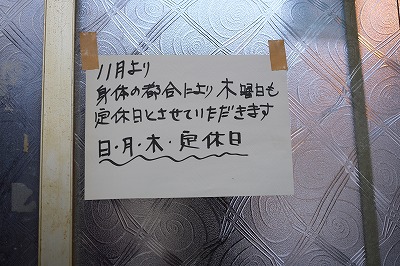 11月より
身体の都合により木曜日も
定休日とさせていただきます
日・月・木・定休日